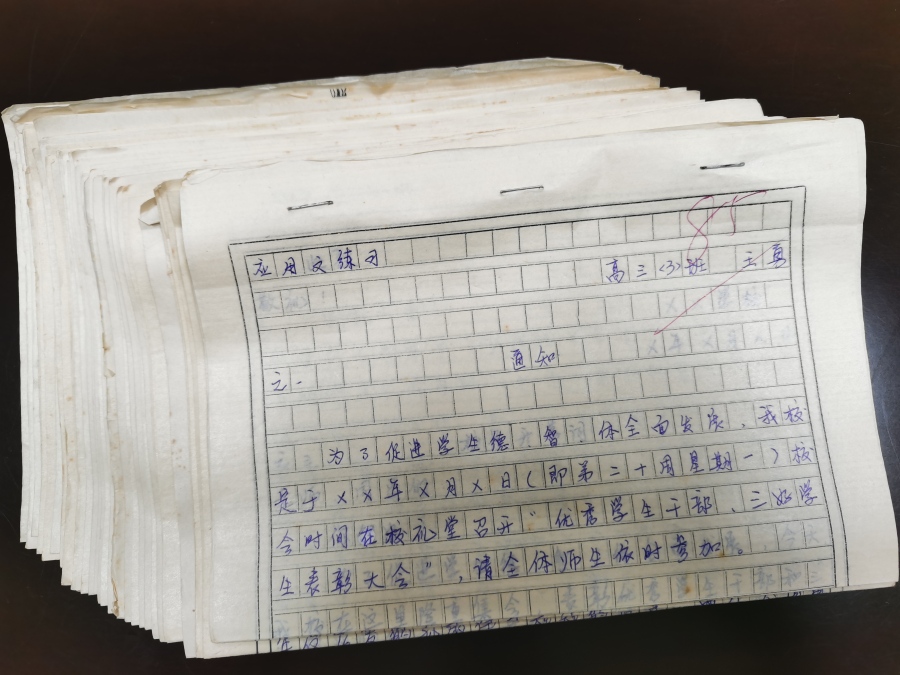 85
应用文练习 高三〈3〉班 王勇
之一 通知
为了促进学生德、智、体全面发展,我校
是于××年×月×日(即第二十周星期一)校
会时间在校礼堂召开“优秀学生干部、三好学
生表彰大会”,请全体师生依时参加。